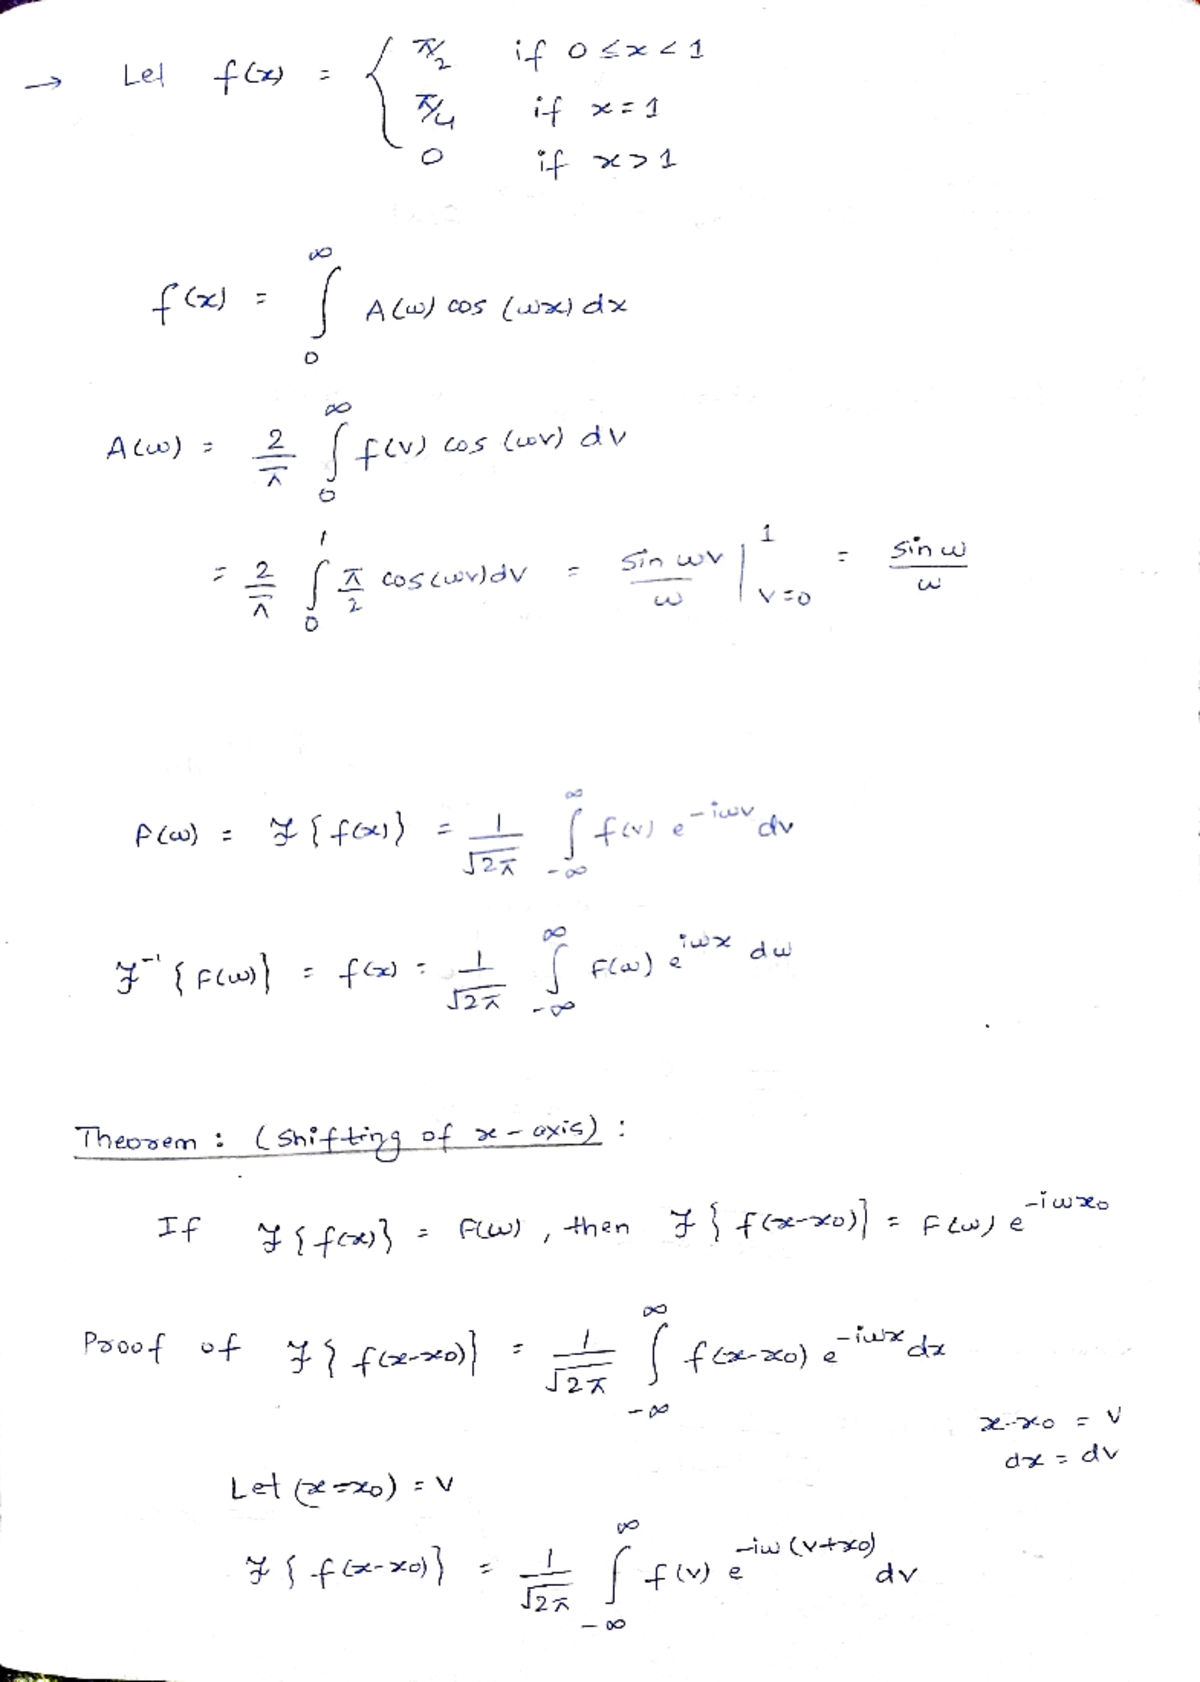 → Let f(x) = { π/2 if 0 ≤ x < 1
π/4 if x = 1
0 if x > 1
f(x) = ∫₀^∞ A(ω) cos (ωx) dx
A(ω) = 2/π ∫₀^∞ f(v) cos (ωv) dv
= 2/π ∫₀^1 π/2 cos(ωv)dv = sin ωv / ω |_{v=0}^1 = sin ω / ω
F(ω) = ℱ{f(x)} = 1/√2π ∫_{-∞}^∞ f(v) e^{-iωv} dv
ℱ⁻¹{F(ω)} = f(x) = 1/√2π ∫_{-∞}^∞ F(ω) e^{iωx} dω
Theorem : (Shifting of x-axis) :
If ℱ{f(x)} = F(ω) , then ℱ{f(x-x₀)} = F(ω) e^{-iωx₀}
Proof of ℱ{f(x-x₀)} = 1/√2π ∫_{-∞}^∞ f(x-x₀) e^{-iωx} dx
x-x₀ = v
dx = dv
Let (x-x₀) = v
ℱ{f(x-x₀)} = 1/√2π ∫_{-∞}^∞ f(v) e^{-iω(v+x₀)} dv